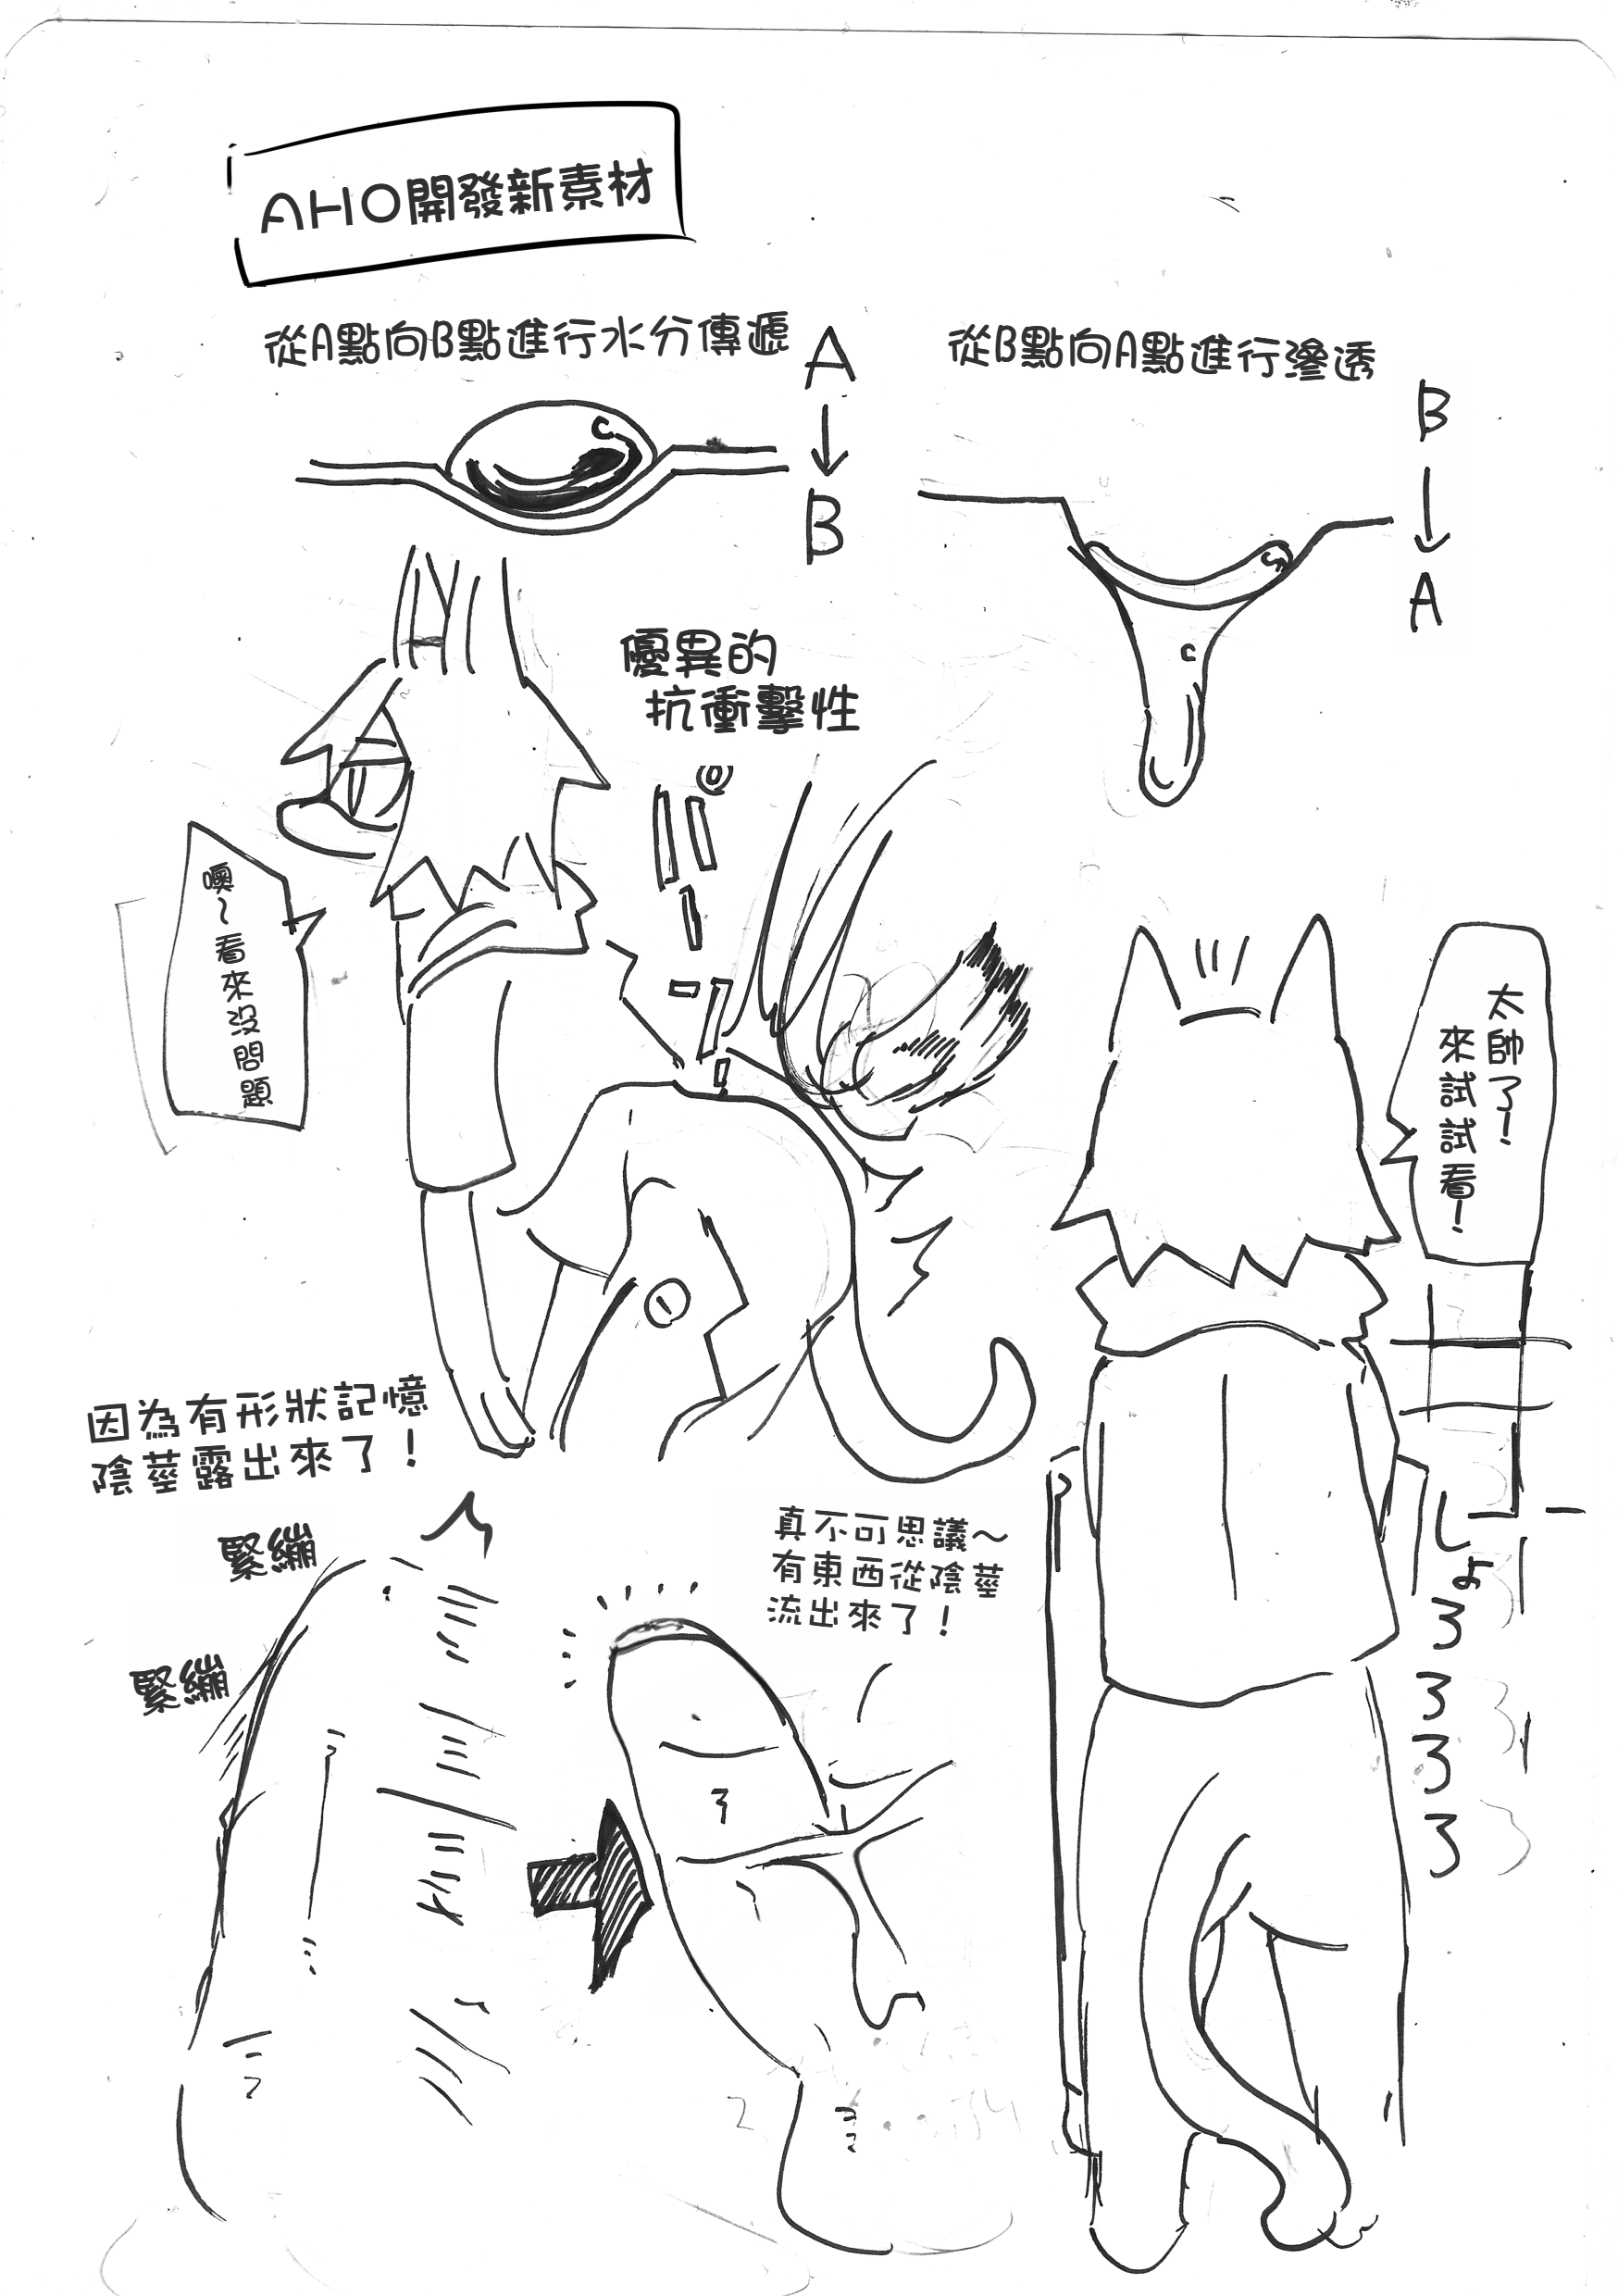 AHO開發新素材
從A點向B點進行水分傳遞
A
B
從B點向A點進行滲透
B
A
優異的
抗衝擊性
噢～看來沒問題
太帥了！
來試試看！
因為有形狀記憶
陰莖露出來了！
緊繃
緊繃
真不可思議～
有東西從陰莖
流出來了！
しょろろろろ